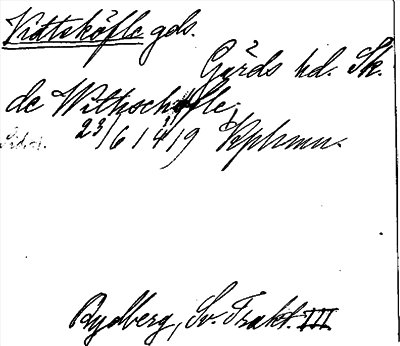 Vittsköfle gds.
Gärds hd. Sk.
de Withschofle,
23/6 1419 Kphmn.
Rydberg, Sv. Trakt. III